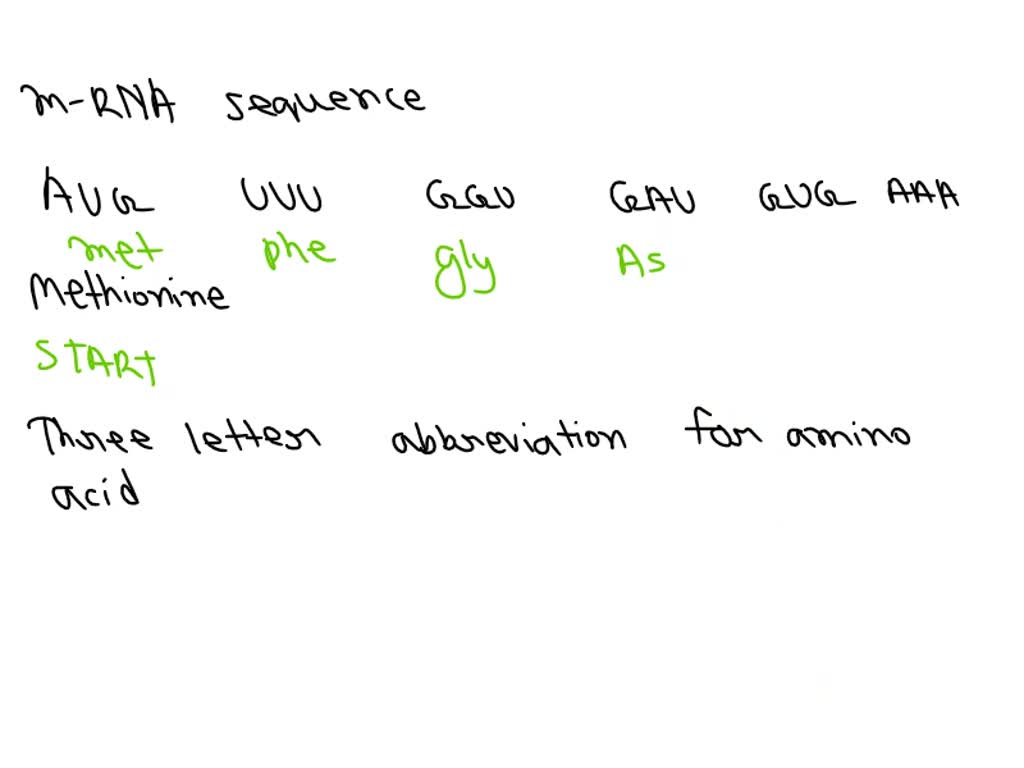 m-RNA sequence
AUG UUU GGU GAU GUG AAA
met phe gly As
Methionine
START
Three letter abbreviation for amino
acid